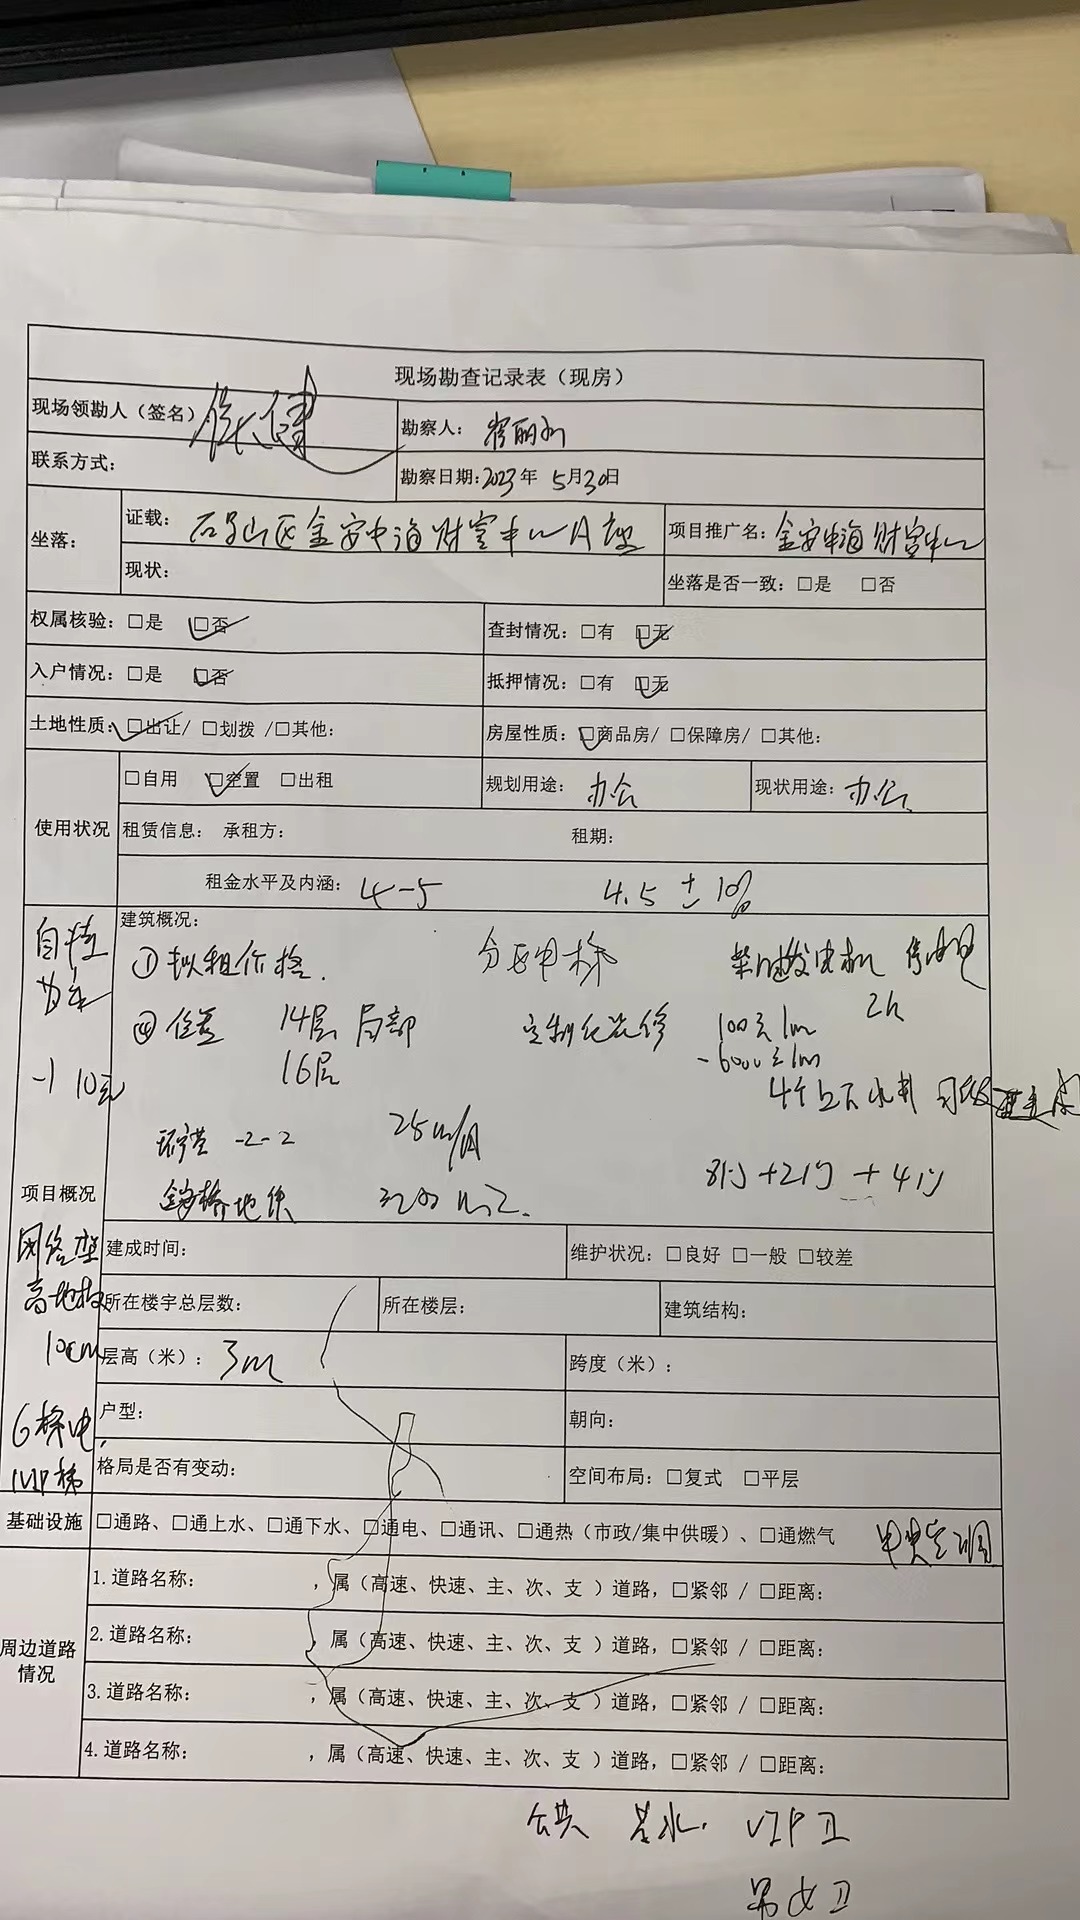 现场勘查记录表（现房）
现场领勘人（签名）
勘察人：
联系方式：
勘察日期：2023年 5月30日
坐落：
证载： 石景山区金安中海财富中心A座
项目推广名：金安中海财富中心
现状：
坐落是否一致：□是 □否
权属核验：□是 □否
查封情况：□有 □无
入户情况：□是 □否
抵押情况：□有 □无
土地性质：□出让/ □划拨 /□其他：
房屋性质：□商品房/ □保障房/ □其他：
使用状况
□自用 □空置 □出租
规划用途： 办公
现状用途：办公
租赁信息： 承租方： 租期：
租金水平及内涵： 4-5 4.5 ± 10%
项目概况
自持
-1 10元
网络型
高地板
10cm
6梯电
1VIP梯
建筑概况：
① 拟租价格. 分区电梯 柴油发电机 停电
2h
④ 位置 14层 局部 定制化装修 100元1m
16层 -6000元1m
4个上下水井
-2-2 25m/月
地铁 m2.
建成时间：
维护状况：□良好 □一般 □较差
所在楼宇总层数：
所在楼层：
建筑结构：
层高（米）： 3m
跨度（米）：
户型：
朝向：
格局是否有变动：
空间布局：□复式 □平层
基础设施
□通路、□通上水、□通下水、□通电、□通讯、□通热（市政/集中供暖）、□通燃气 中央空调
周边道路
情况
1.道路名称： ，属（高速、快速、主、次、支 ）道路，□紧邻 / □距离：
2.道路名称： ，属（高速、快速、主、次、支 ）道路，□紧邻 / □距离：
3.道路名称： ，属（高速、快速、主、次、支 ）道路，□紧邻 / □距离：
4.道路名称： ，属（高速、快速、主、次、支 ）道路，□紧邻 / □距离：
公共 VIP卫
男女卫